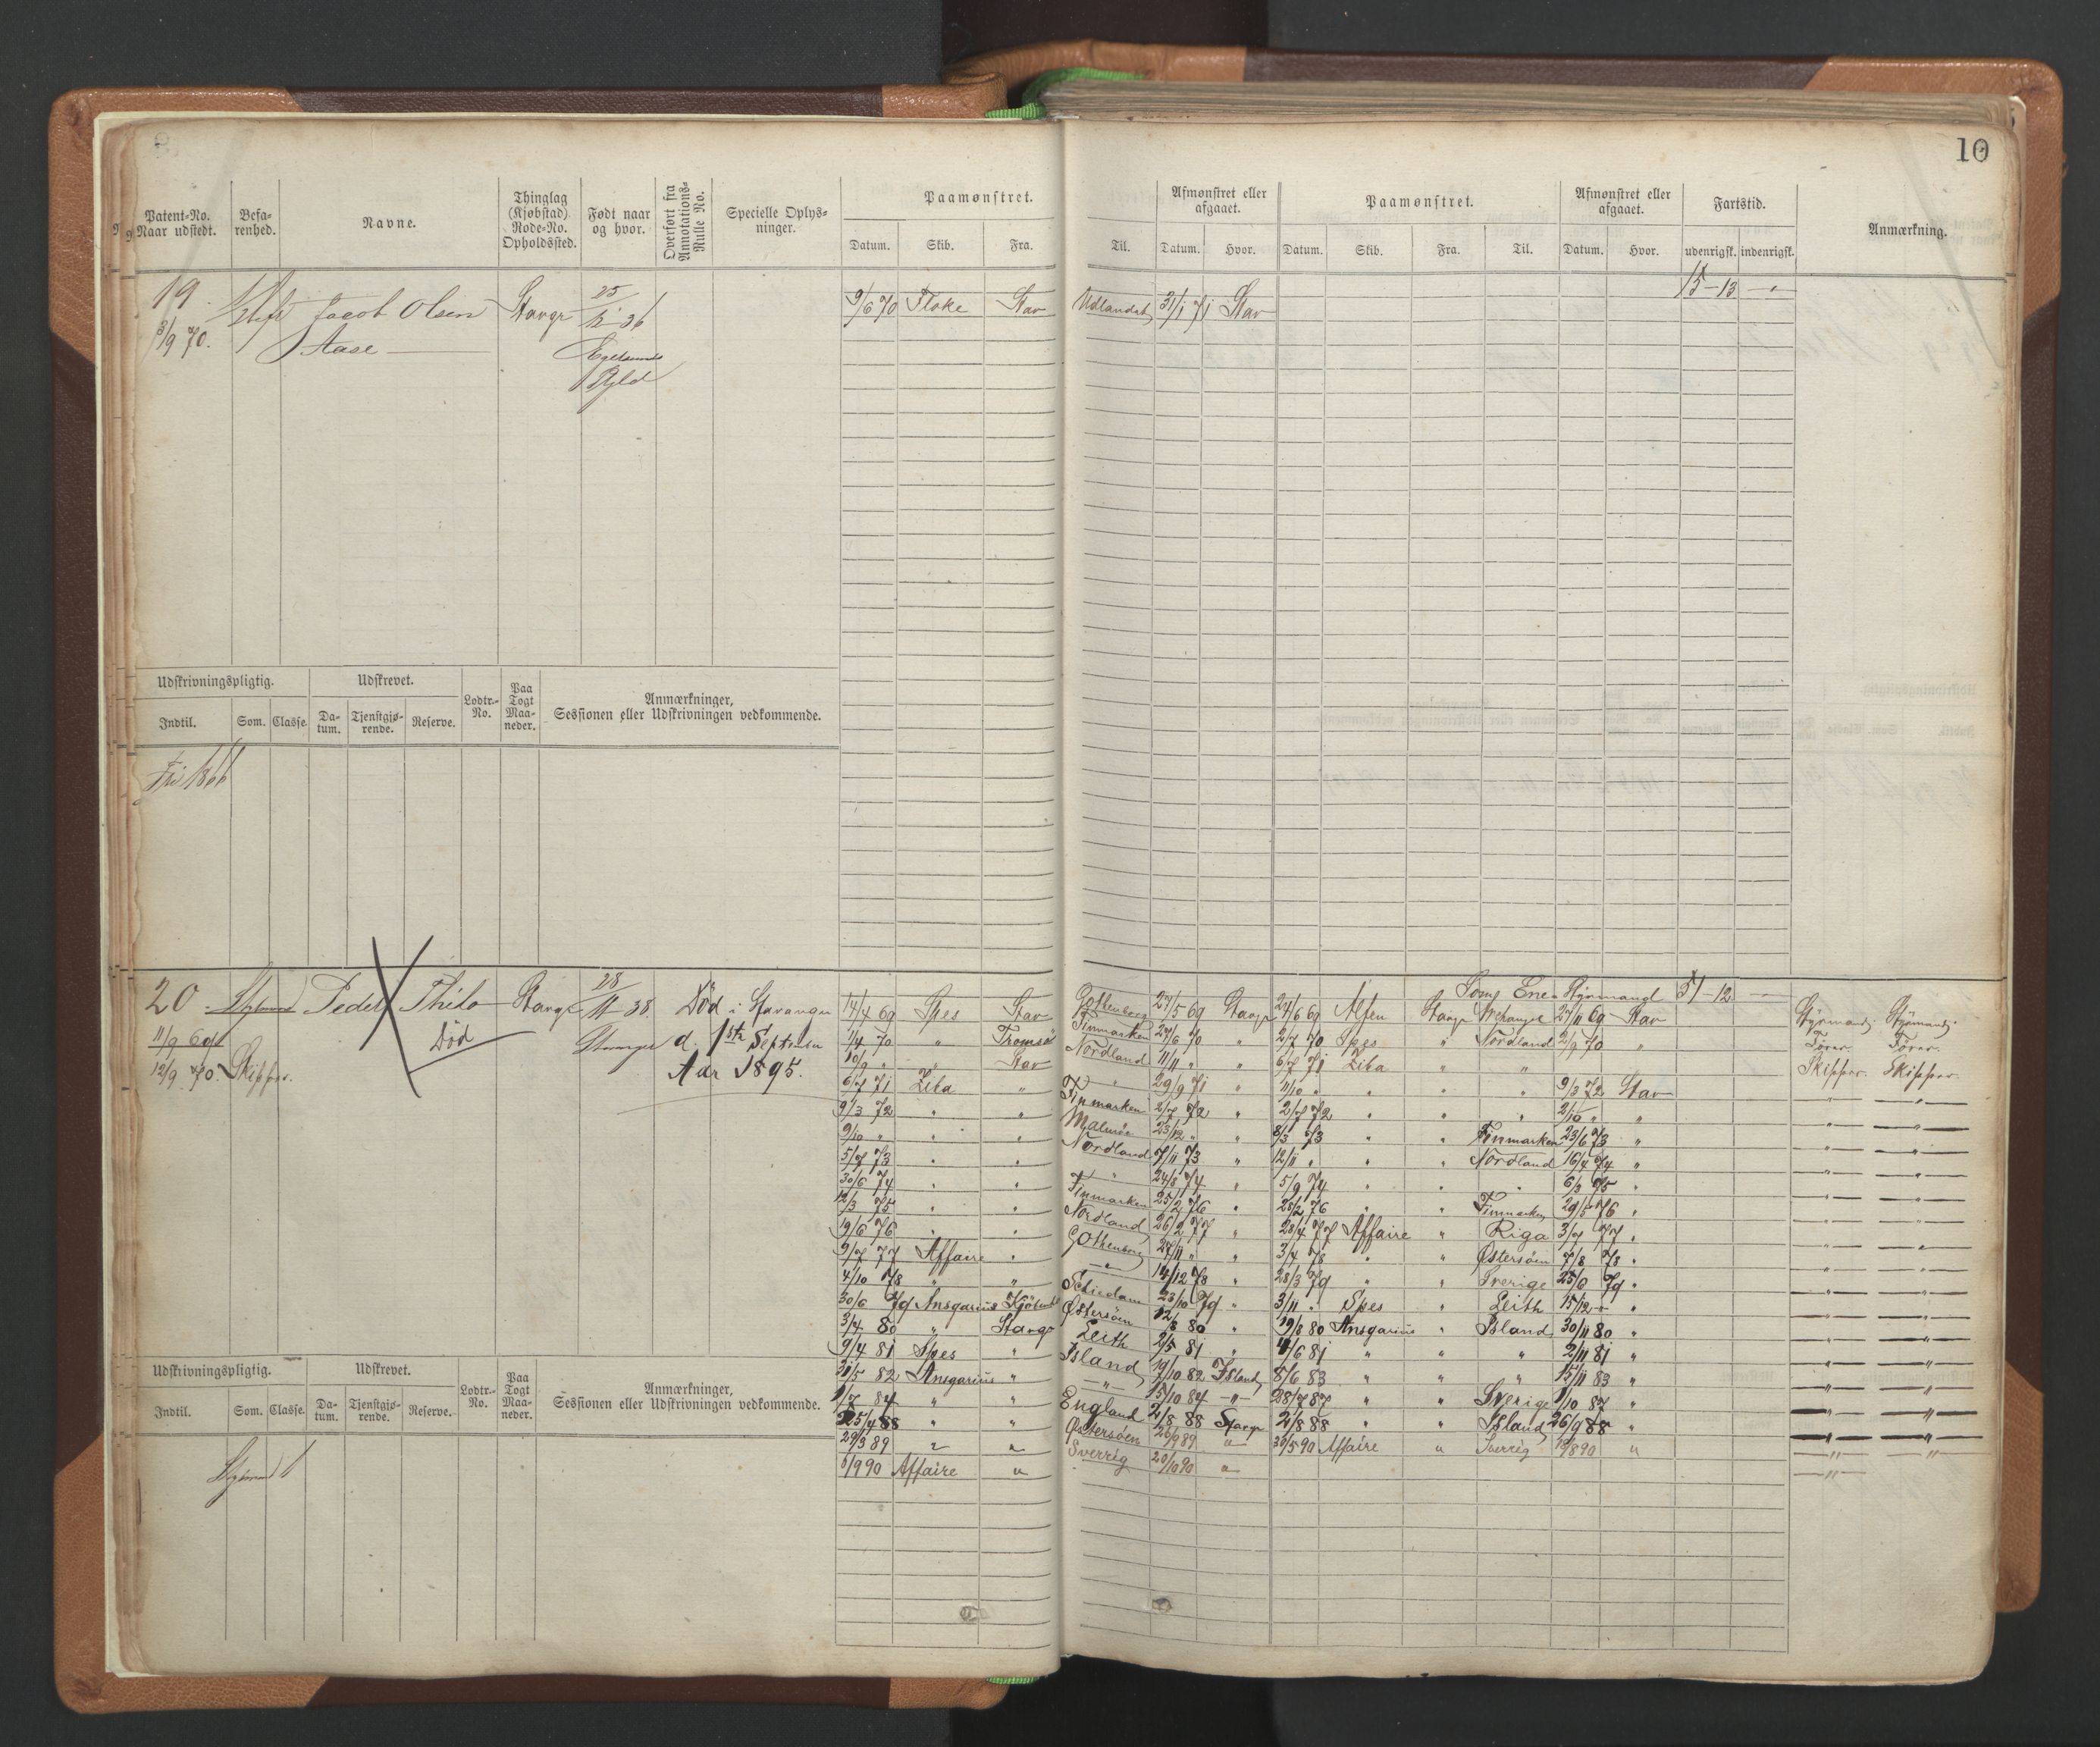 10
Patent-No. Naar udstedt.
Befarenhed.
Navne.
Thinglag (Kjøbstad) Rode-No. Opholdssted.
Født naar og hvor.
Overført fra Annotations-Rulle No.
Specielle Oplysninger.
Paamønstret.
Datum. Skib. Fra.
Til.
Afmønstret eller afgaaet.
Datum. Hvor.
Paamønstret.
Datum. Skib. Fra. Til.
Afmønstret eller afgaaet.
Datum. Hvor.
Fartstid.
udenrigsk. indenrigsk.
Anmærkning.
19 Jacob Olsen Stavgr 25 9/6 70 Floke Stav Udlandet 31/1 71 Stav 15-13 "
3/9 70. Aase 36
Udskrivningspligtig. Udskrevet. Lodtr.-No. Paa Togt Maaneder. Anmærkninger, Sessionen eller Udskrivningen vedkommende.
Indtil. Som. Classe. Datum. Tjenstgjørende. Reserve.
Fri 1866
20 Peder Thilo Stavgr 28/11 38. Død i Stavanger
11/9 69 Død Stavanger d. 1ste September
12/9 70. Skipper. Aar 1895.
Som Ene Styrmand 51-12
14/4 69 Spes Stav Gottenborg 27/5 69 Stavgr 24/6 69 Alfen Stavgr Archangel 27/11 69 Stav Styrmand Styrmand
1/4 70 " Tromsø Finmarken 27/6 70 " 2/7 70 Spes " Nordland 2/9 70 " Fører. Fører.
10/9 " " Stav Nordland 11/11 " " 6/7 71 Zika " " Skipper. Skipper.
6/7 71 Zika " " 29/9 71 " 11/10 " " " " 9/3 72 Stav " "
9/3 72 " " Finmarken 2/7 72 " 2/7 72 " " " 2/10 " " " "
9/10 " " " Malmöe 23/12 " " 8/3 73 " " Finmarken 23/6 73 " " "
5/7 73 " " Nordland 7/11 73 " 12/11 " " " Nordland 16/4 74 " " "
30/6 74 " " " 24/8 74 " 5/9 74 " " " 6/3 75 " " "
12/3 75 " " Finmarken 25/2 76 " 28/2 76 " " Finmarken 29/5 76 " " "
19/6 76 " " Nordland 26/2 77 " 28/4 77 Affaire " Riga 3/7 77 " " "
9/7 77 Affaire " Gothenborg 27/11 " " 3/4 78 " " Østersøen 7/8 78 " " "
4/10 78 " " " 14/12 78 " 28/3 79 " " Sverige 25/6 79 " " "
30/6 79 Ansgarius Schiedam 23/10 79 " 3/11 " Spes " Leith 15/12 " " " "
3/4 80 " Stavgr Østersøen 12/8 80 " 19/8 80 Ansgarius " Island 30/11 80 " " "
9/4 81 Spes " Leith 2/5 81 " 4/6 81 " " " 2/11 81 " " "
31/5 82 Ansgarius " Island 19/10 82 Island 8/6 83 " " " 15/11 83 " " "
1/7 84 " " " 15/10 84 " 28/7 87 " " Sverige 1/10 87 " " "
25/4 88 " " England 2/8 88 Stavgr 2/8 88 " " Island 26/9 88 " " "
29/3 89 " " Østersøen 26/9 89 " 30/5 90 Affaire " Sverrig 18/8 90 " " "
6/9 90 Affaire " Sverrig 20/10 90 " "
Udskrivningspligtig. Udskrevet. Lodtr.-No. Paa Togt Maaneder. Anmærkninger, Sessionen eller Udskrivningen vedkommende.
Indtil. Som. Classe. Datum. Tjenstgjørende. Reserve.